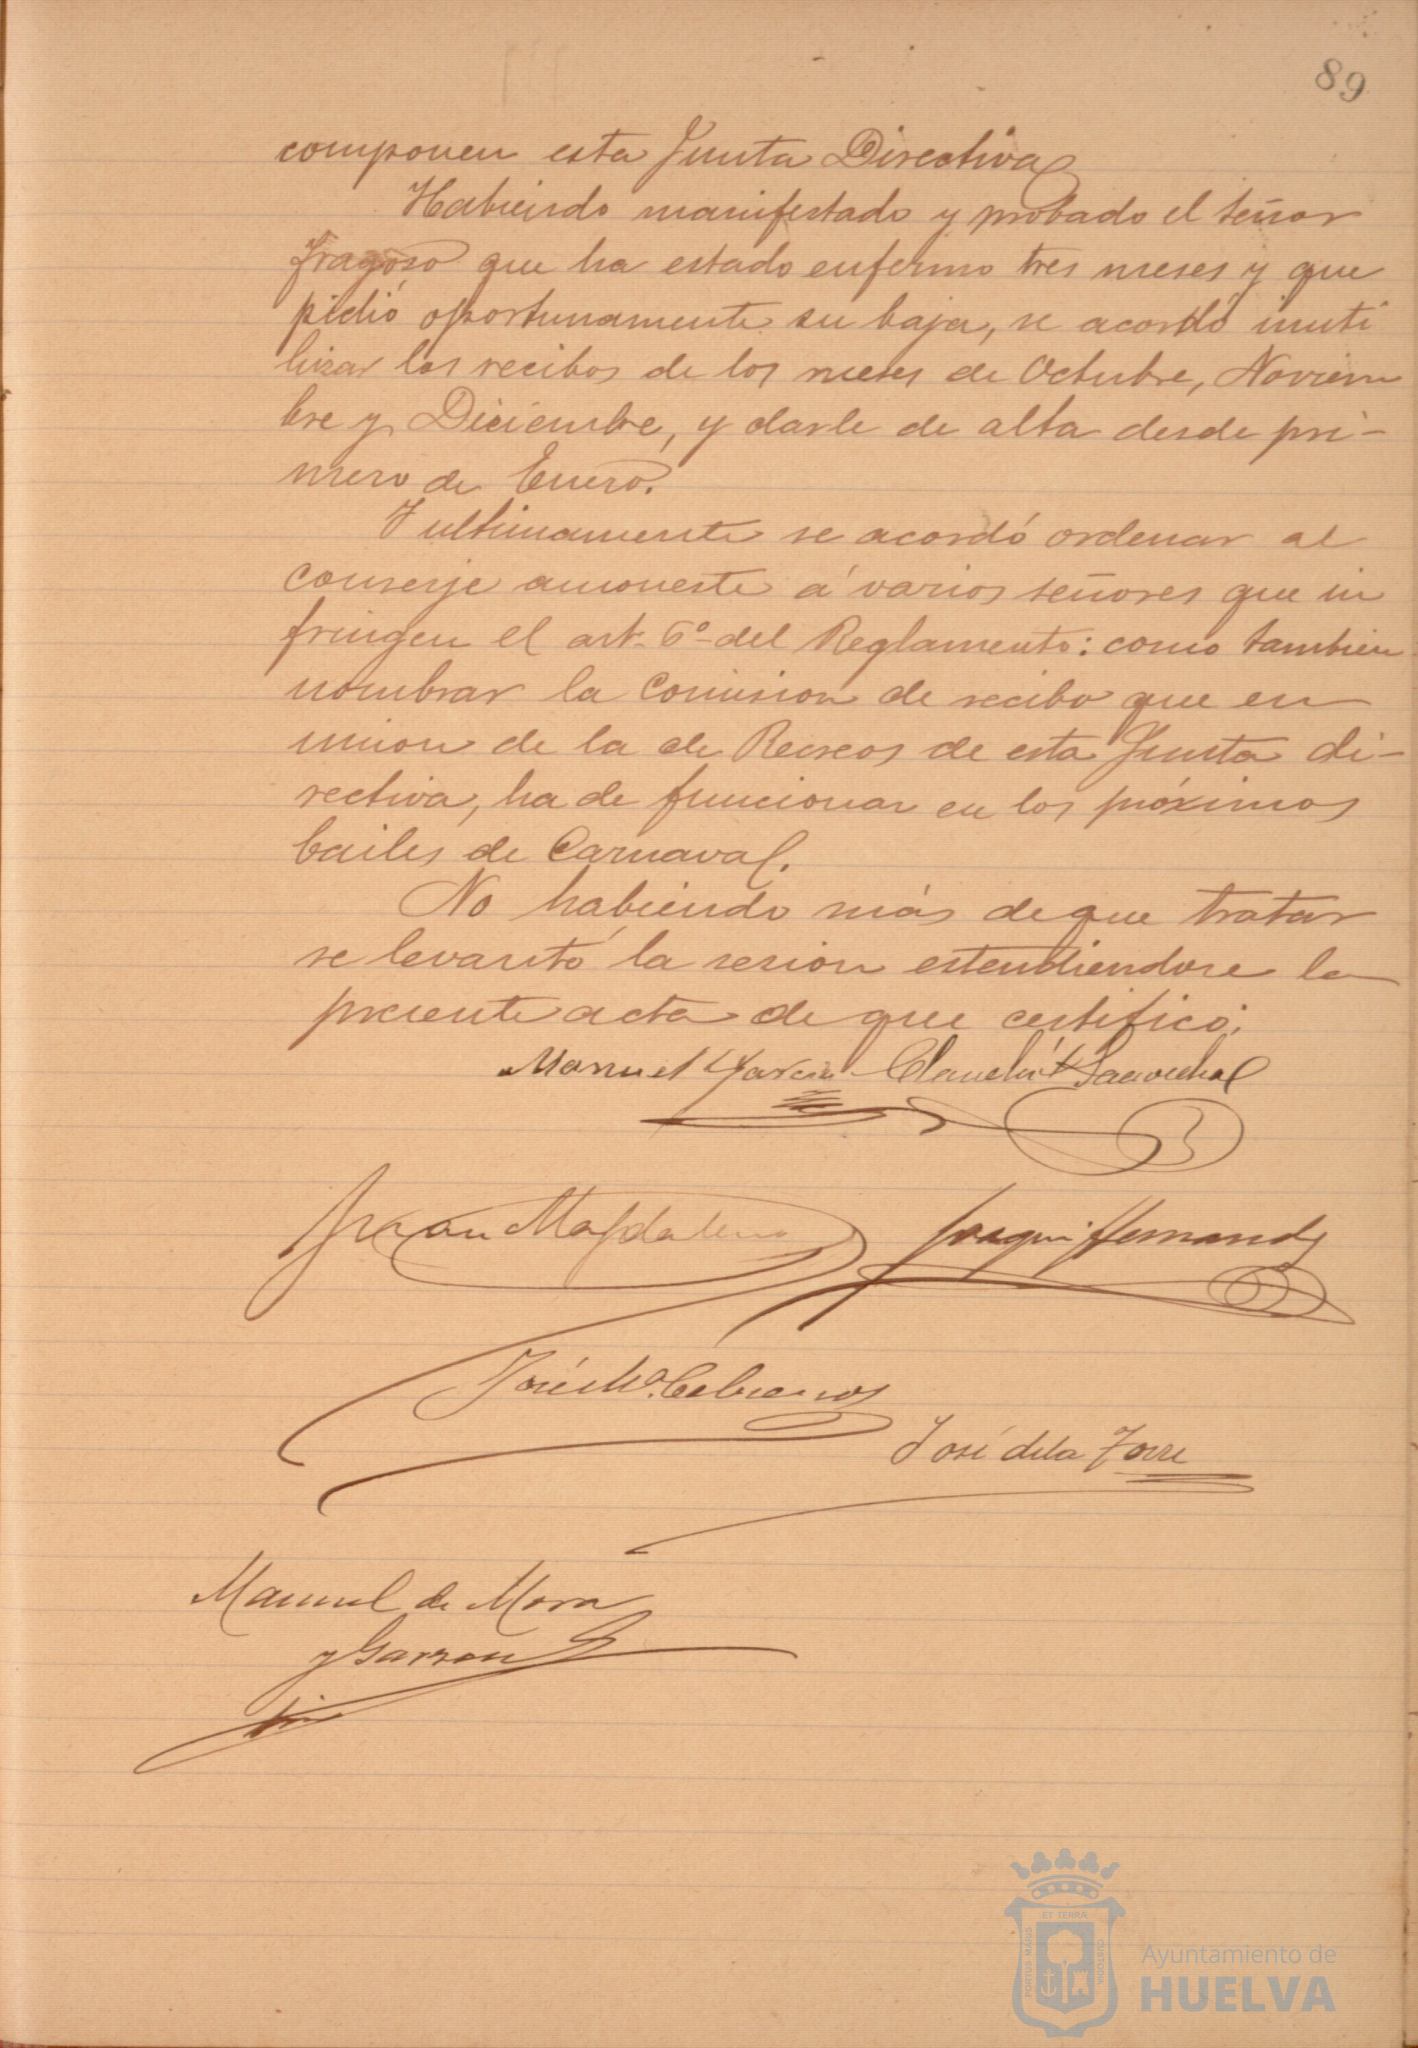 89
componen esta Junta Directiva
Habiendo manifestado y probado el señor
Fragoso que ha estado enfermo tres meses y que
pidió oportunamente su baja, se acordó inuti
lizar los recibos de los meses de Octubre, Noviem
bre y Diciembre, y darle de alta desde pri-
mero de Enero.
Y ultimamente se acordó ordenar al
conserje amoneste á varios señores que in
fringen el art. 6º del Reglamento: como tambien
nombrar la Comision de recibo que en
union de la de Recreos de esta Junta di-
rectiva, ha de funcionar en los próximos
bailes de Carnaval.
No habiendo más de que tratar
se levantó la sesion estendiendose la
presente acta de que certifico:
Manuel Garcia Claudio Saavedra
Juan Magdaleno Joaquin Hernandez
José Mª Cebreros
José de la Torre
Manuel de Mora
y Garzon
ET TERRÆ
PORTUS MARIS
CUSTODIA
Ayuntamiento de
HUELVA